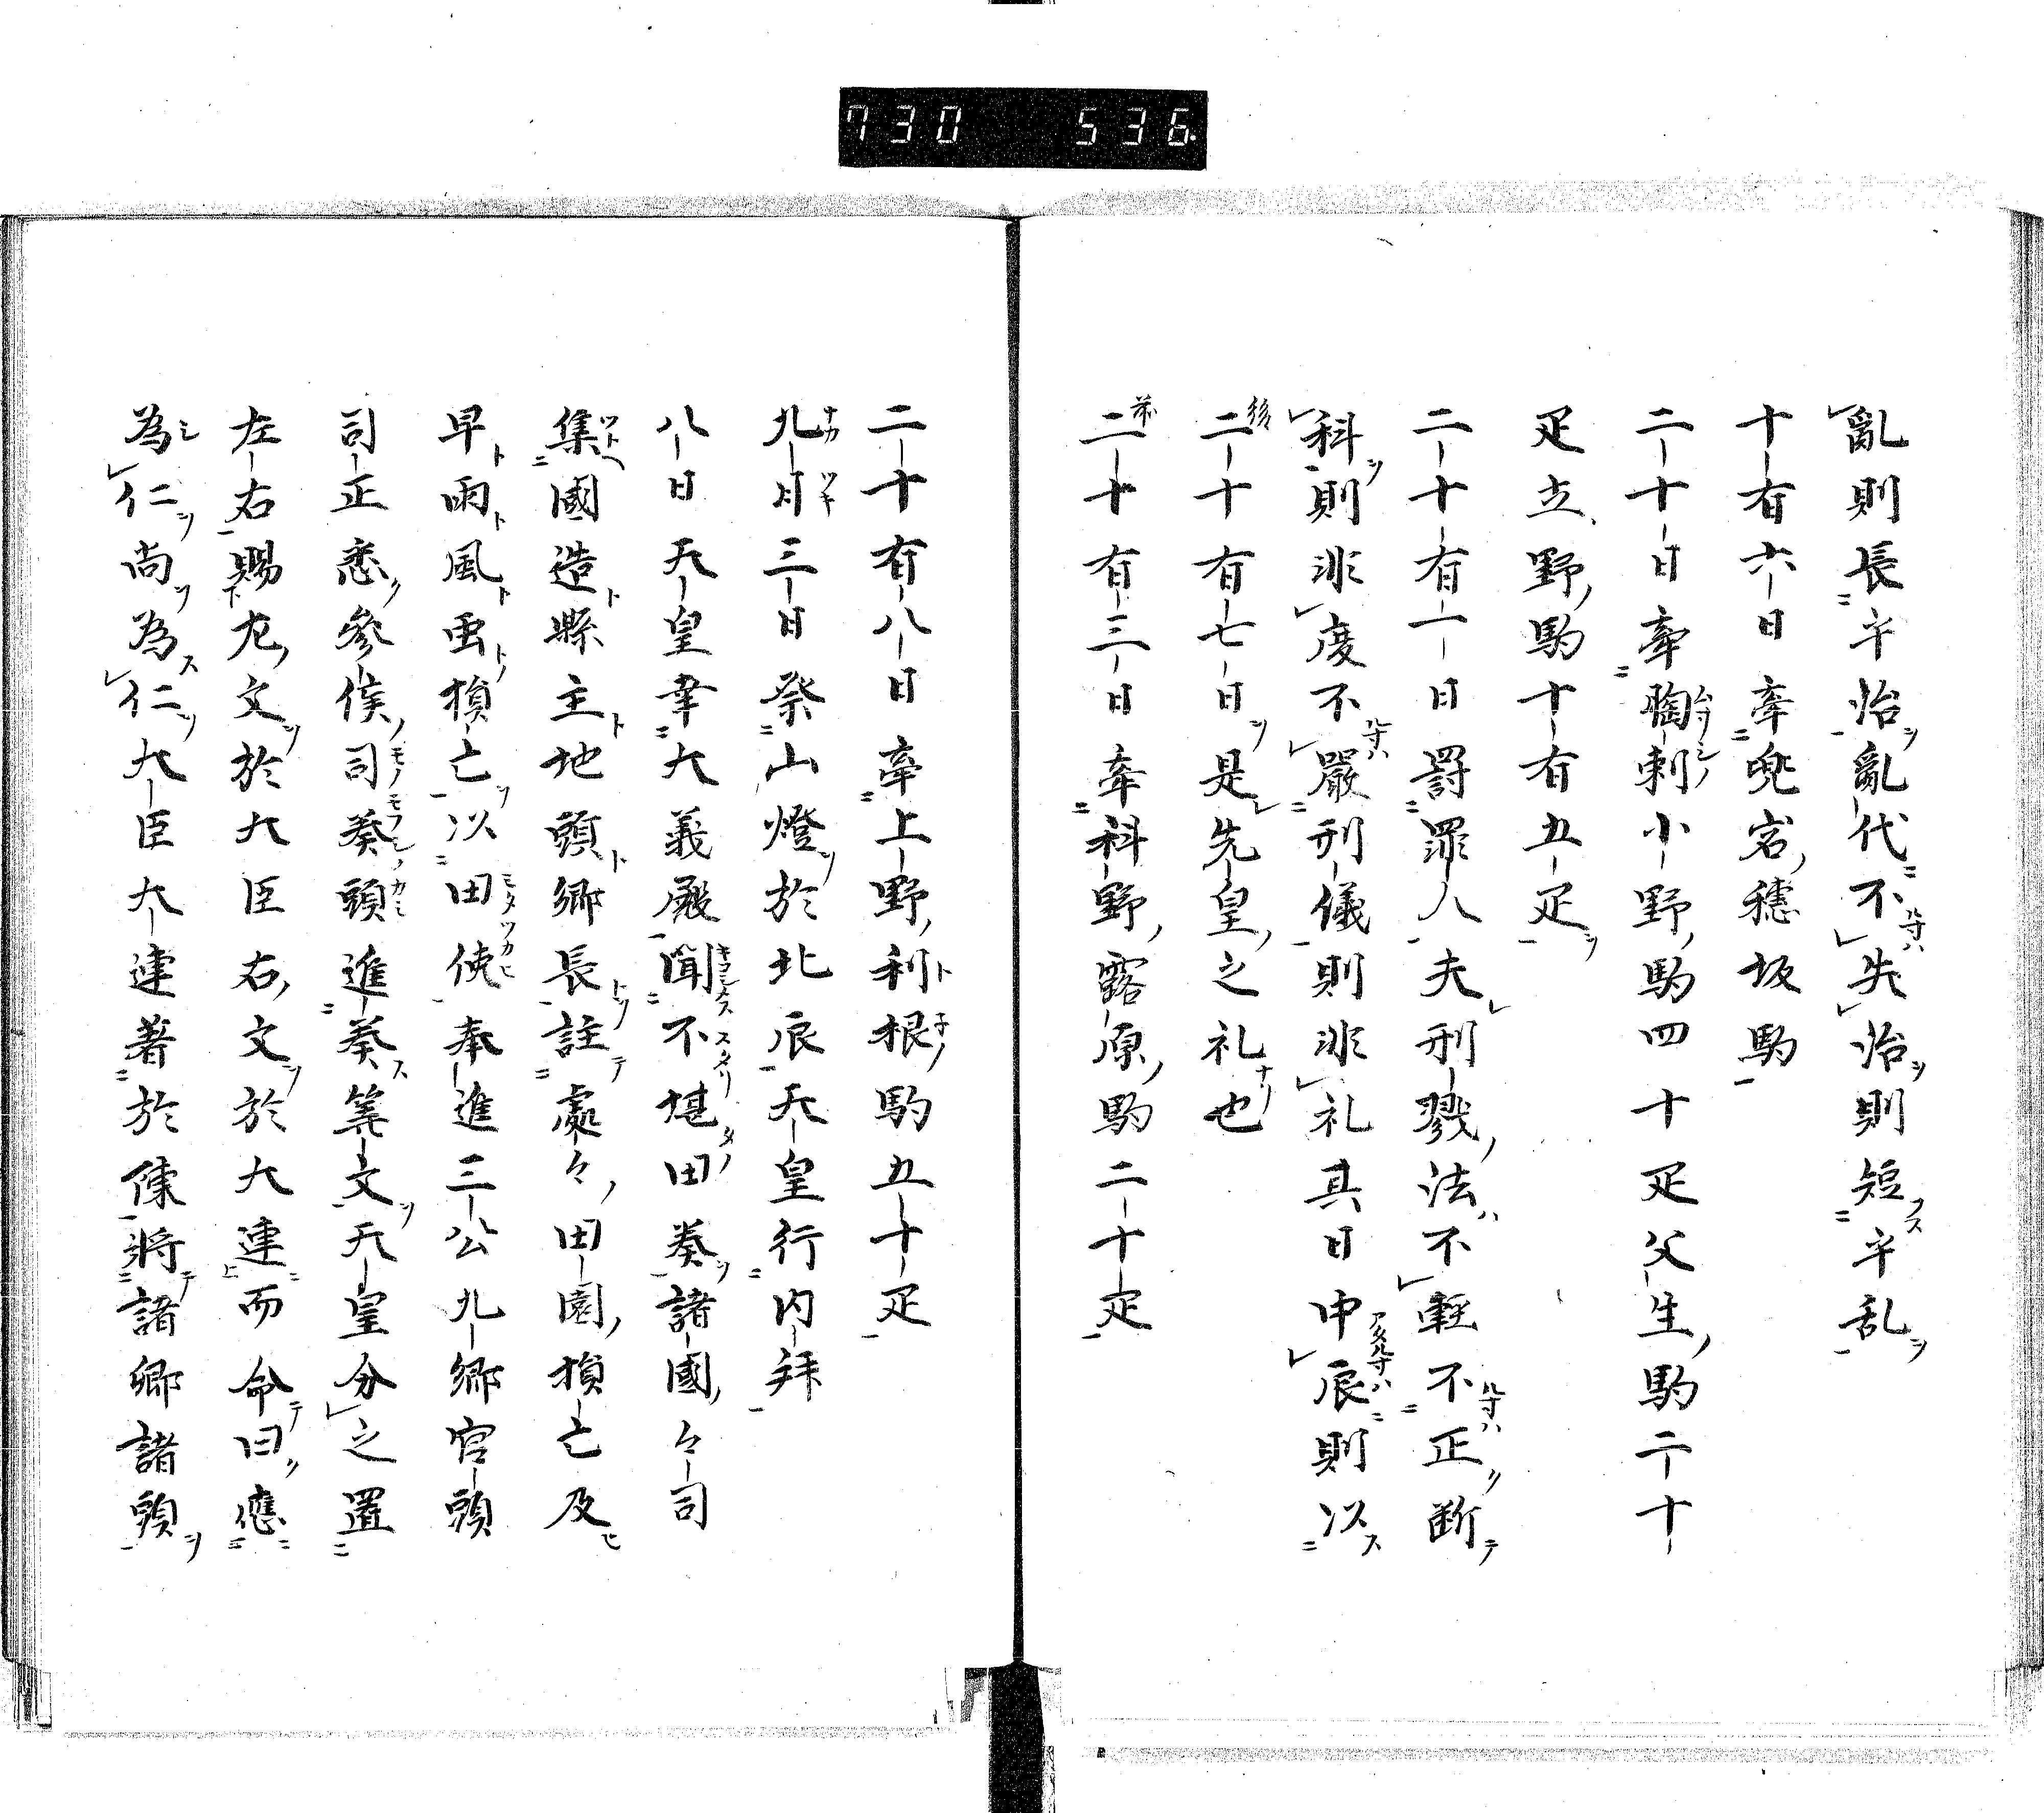 730 536
亂則長平治亂代不失治則短平乱
十有六日牽兜宕穗坂駒
二十日牽陶刺小野駒四十疋父生駒二十
疋立野駒十有五疋
二十有一日罸罪人夫刑戮法不輕不正断
科則非度不嚴刑儀則非礼其日中辰則以
後二十有七日是先皇之礼也
前二十有三日牽科野露原駒二十疋
二十有八日牽上野利根駒五十疋
九月三日祭山燈於北辰天皇行内拜
八日天皇幸大義殿聞不堪田奏諸國々司
集國造縣主地頭郷長註處々田園損亡及
早雨風虫損亡以田使奉進三公九卿官頭
司正悉參候司奏頭進奏筭文天皇分之置
左右賜尤文於大臣右文於大連而命曰應
為仁尚為仁大臣大連著於陣將諸卿諸頭